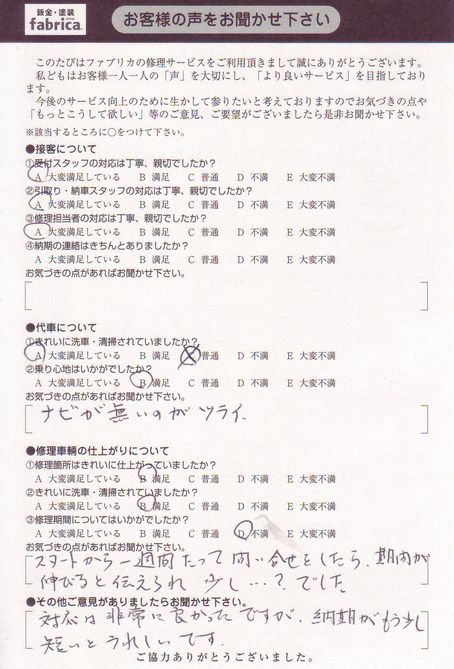 鈑金・塗装
fabrica.
お客様の声をお聞かせ下さい
このたびはファブリカの修理サービスをご利用頂きまして誠にありがとうございます。
私どもはお客様一人一人の「声」を大切にし、「より良いサービス」を目指しており
ます。
今後のサービス向上のために生かして参りたいと考えておりますのでお気づきの点や
「もっとこうして欲しい」等のご意見、ご要望がございましたら是非お聞かせ下さい。
※該当するところに○をつけて下さい。
●接客について
①受付スタッフの対応は丁寧、親切でしたか?
A 大変満足している B 満足 C 普通 D 不満 E 大変不満
②引取り・納車スタッフの対応は丁寧、親切でしたか?
A 大変満足している B 満足 C 普通 D 不満 E 大変不満
③修理担当者の対応は丁寧、親切でしたか?
A 大変満足している B 満足 C 普通 D 不満 E 大変不満
④納期の連絡はきちんとありましたか?
A 大変満足している B 満足 C 普通 D 不満 E 大変不満
お気づきの点があればお聞かせ下さい。
●代車について
①きれいに洗車・清掃されていましたか?
A 大変満足している B 満足 C 普通 D 不満 E 大変不満
②乗り心地はいかがでしたか?
A 大変満足している B 満足 C 普通 D 不満 E 大変不満
お気づきの点があればお聞かせ下さい。
ナビが無いのがツライ.
●修理車輌の仕上がりについて
①修理箇所はきれいに仕上がっていましたか?
A 大変満足している B 満足 C 普通 D 不満 E 大変不満
②きれいに洗車・清掃されていましたか?
A 大変満足している B 満足 C 普通 D 不満 E 大変不満
③修理期間についてはいかがでしたか?
A 大変満足している B 満足 C 普通 D 不満 E 大変不満
お気づきの点があればお聞かせ下さい。
スタートから一週間たって問い合せをしたら、期内が
伸びると伝えられ 少し…?でした
●その他ご意見がありましたらお聞かせ下さい。
対応は非常に良かったですが、納期がもう少し
短いとうれしいです.
ご協力ありがとうございました。